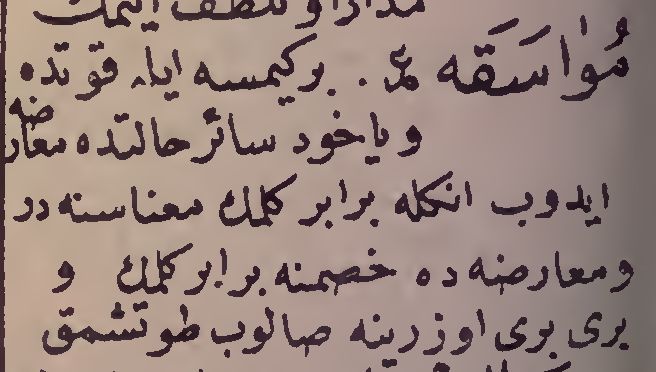 مدارا و تلطف ایتمك
مُوٰاسَقَه ع . بركیمسه ایله قوتده
و یاخود سائر حالتده معارضه
ایدوب انكله برابر كلمك معناسنه در
و معارضه ده خصمنه برابر كلمك و
بری بری اوزرینه صالوب طوتشمق